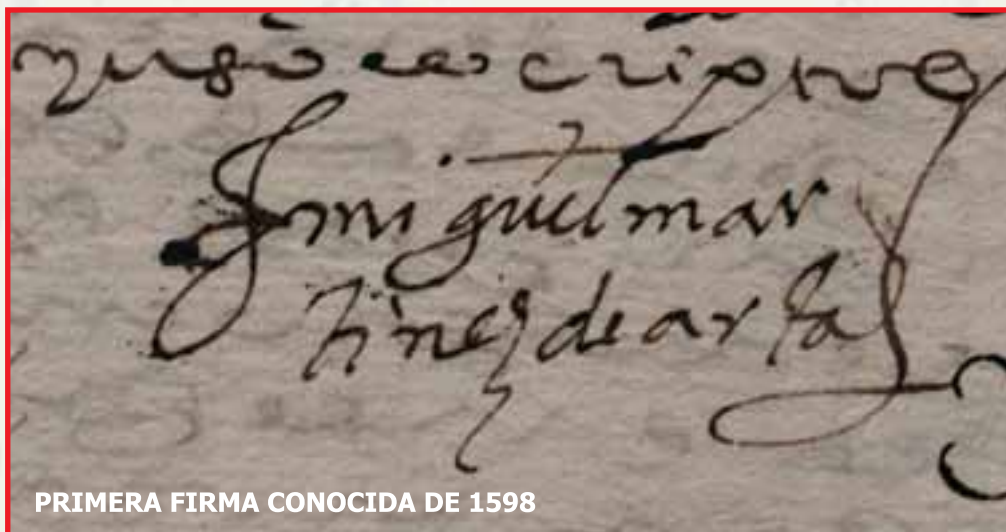 miguel mar
tinez de arta
PRIMERA FIRMA CONOCIDA DE 1598